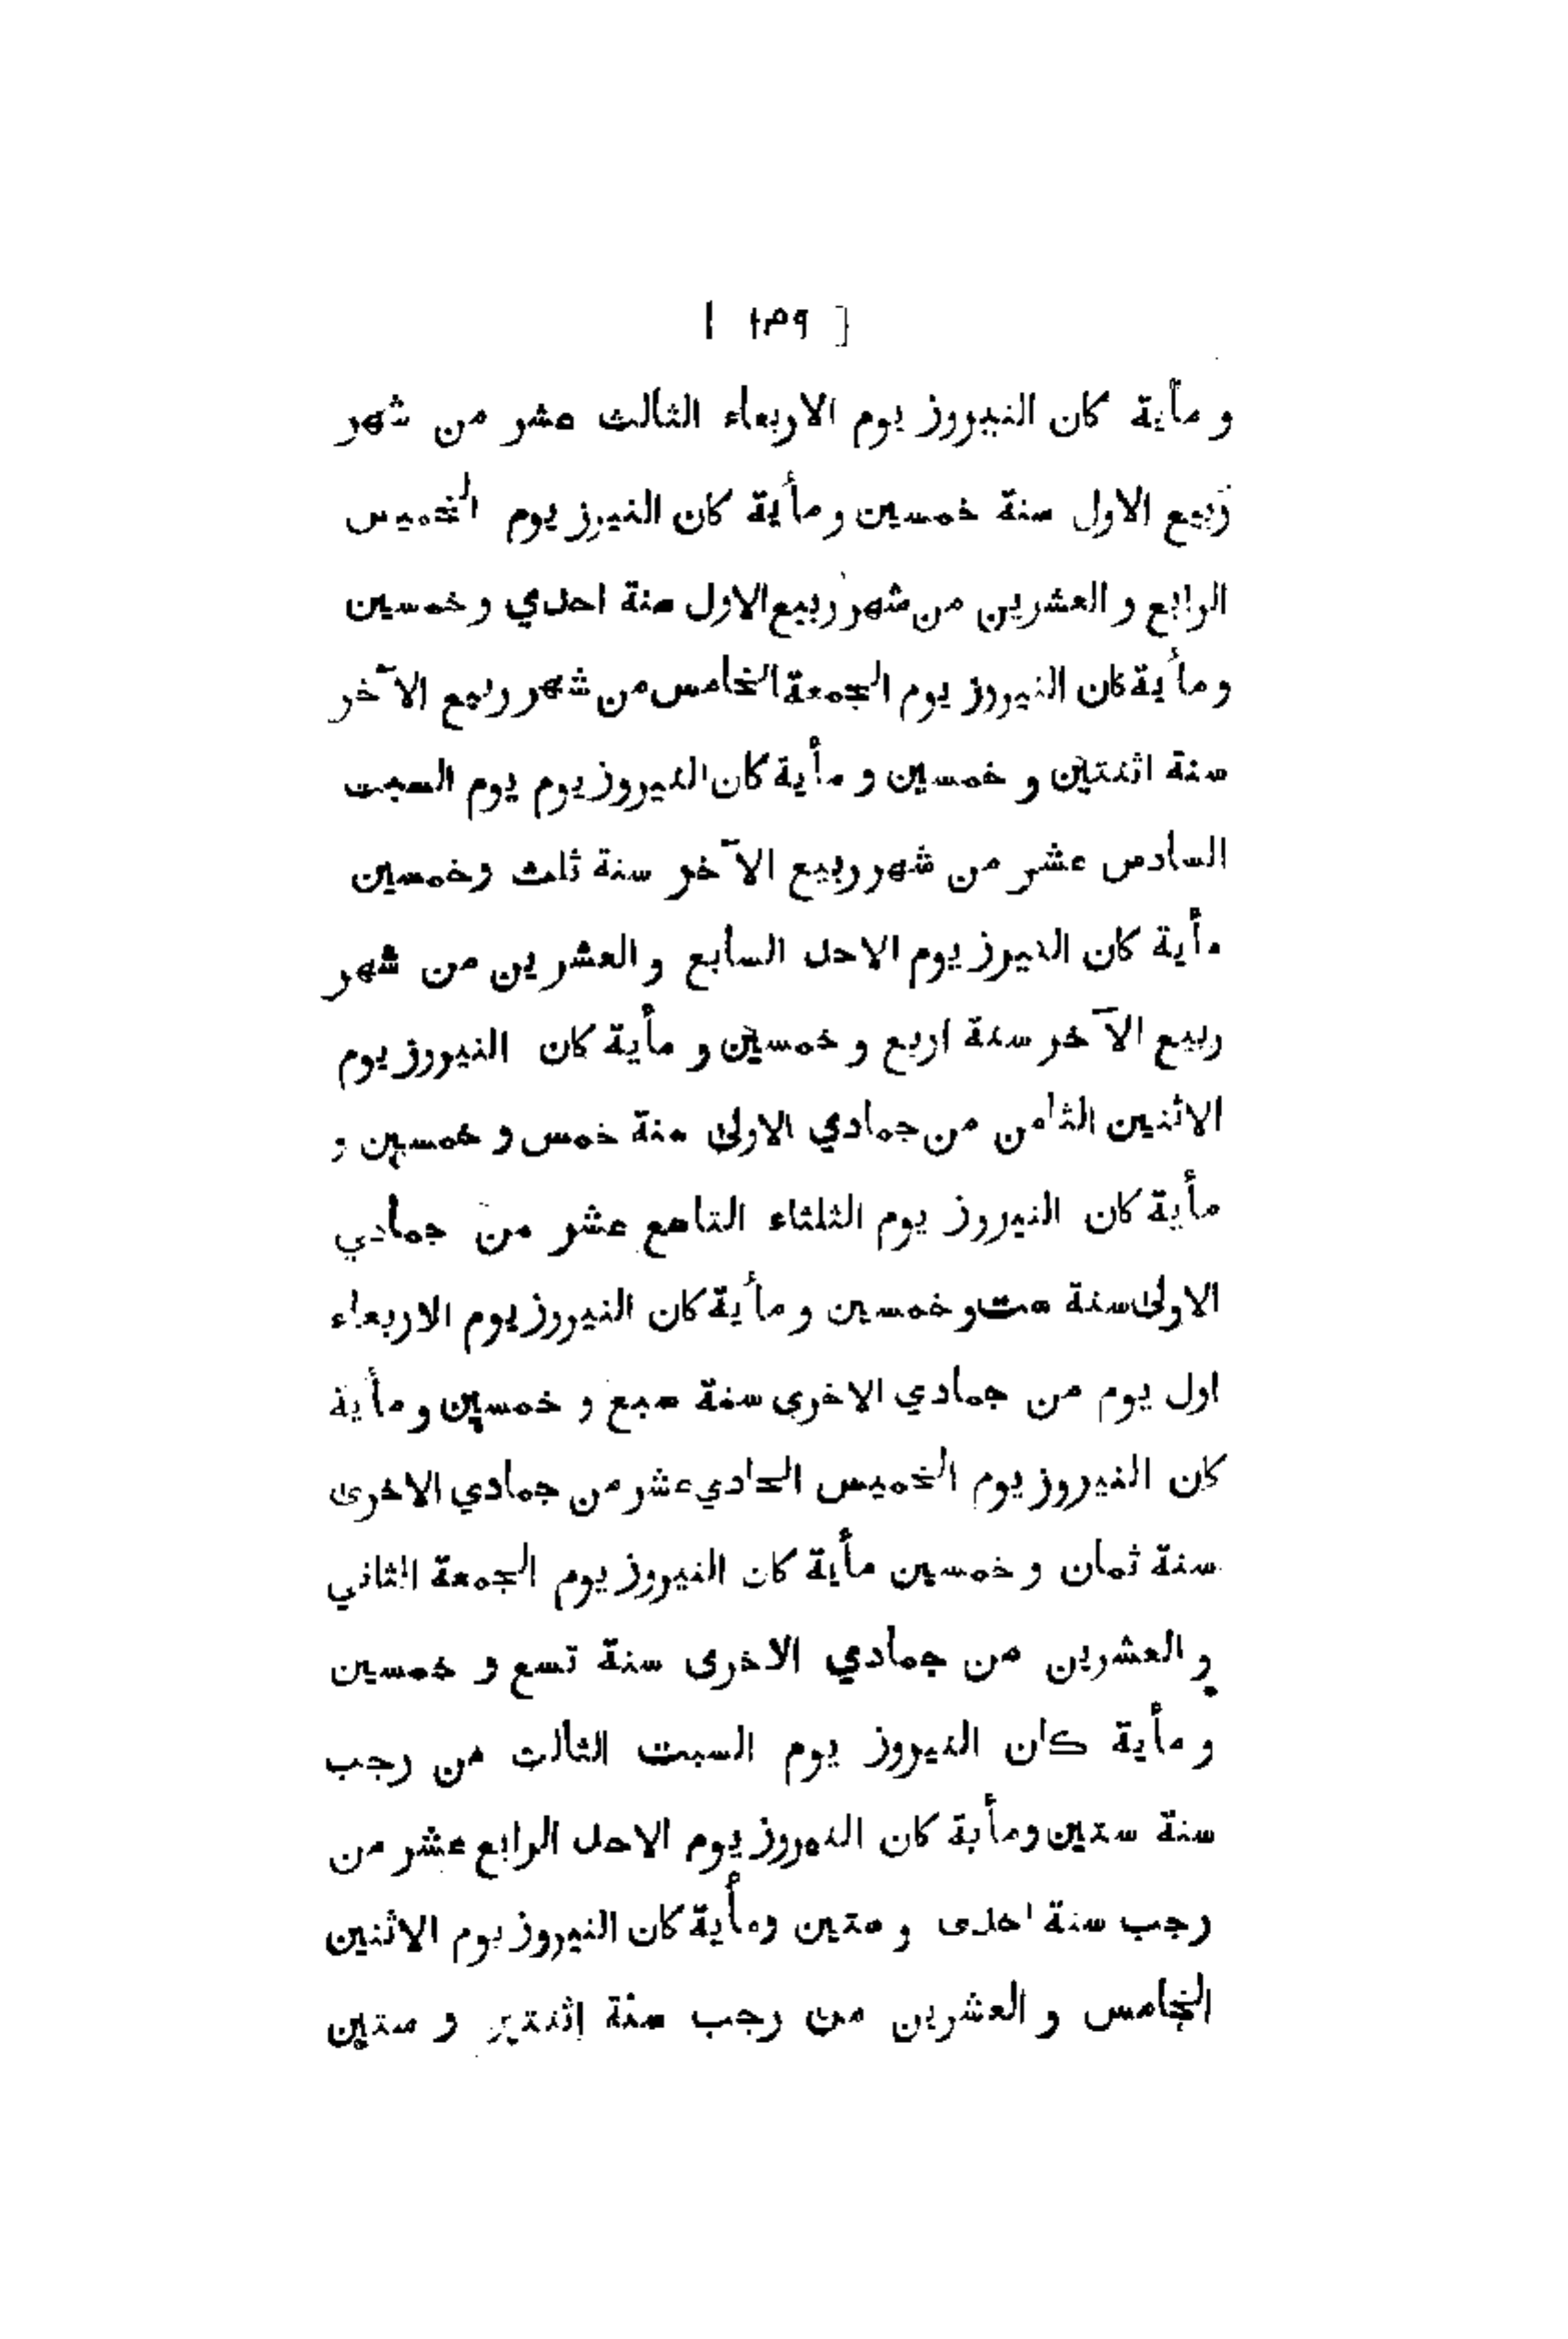 [ ١٣٩ ]
و مأية كان النيروز يوم الاربعاء الثالث عشر من شهر
ربيع الاول سنة خمسين و مأية كان النيرز يوم الخميس
الرابع و العشرين من شهر ربيع الاول سنة احدي و خمسين
و مأية كان النيروز يوم الجمعة الخامس من شهر ربيع الآخر
سنة اثنتين و خمسين و مأية كان النيروز يوم يوم السبت
السادس عشر من شهر ربيع الآخر سنة ثلث وخمسين
مأية كان النيرز يوم الاحد السابع و العشرين من شهر
ربيع الآخر سنة اربع و خمسين و مأية كان النيروز يوم
الاثنين الثامن من جمادي الاولى سنة خمس و خمسين و
مأية كان النيروز يوم الثلثاء التاسع عشر من جمادي
الاولى سنة ست و خمسين و مأية كان النيروز يوم الاربعاء
اول يوم من جمادي الاخرى سنة سبع و خمسين و مأية
كان النيروز يوم الخميس الحادي عشر من جمادي الاخرى
سنة ثمان و خمسين مأية كان النيروز يوم الجمعة الثاني
و العشرين من جمادي الاخرى سنة تسع و خمسين
و مأية كان النيروز يوم السبت الثالث من رجب
سنة ستين ومأية كان النيروز يوم الاحد الرابع عشر من
رجب سنة احدى و ستين ومأية كان النيروز يوم الاثنين
الخامس و العشرين من رجب سنة إثنتين و ستين